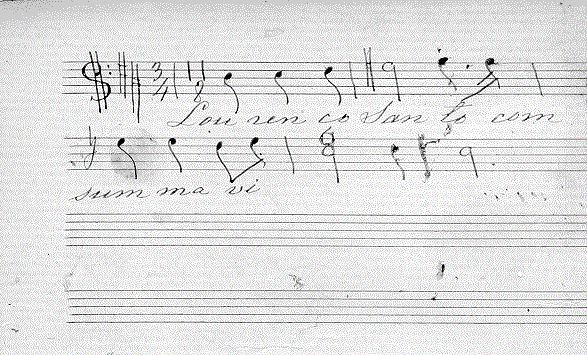 Lou ren co San to com
sum ma vi